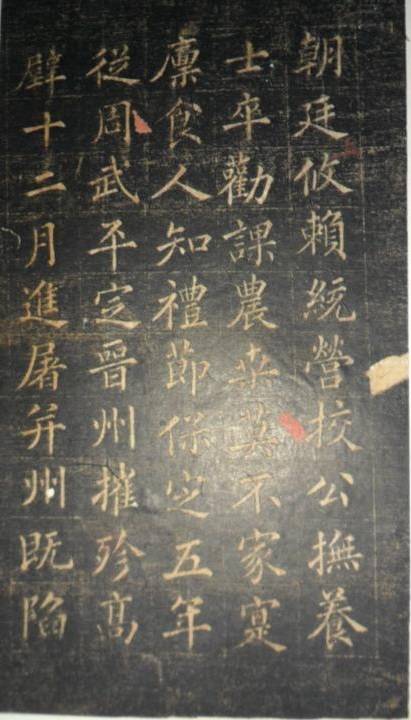 朝廷攸賴統營校公撫養
士卒勸課農桒莫不家寔
廩食人知禮節保定五年
從周武平定晉州摧殄高
壁十二月進屠并州既陷